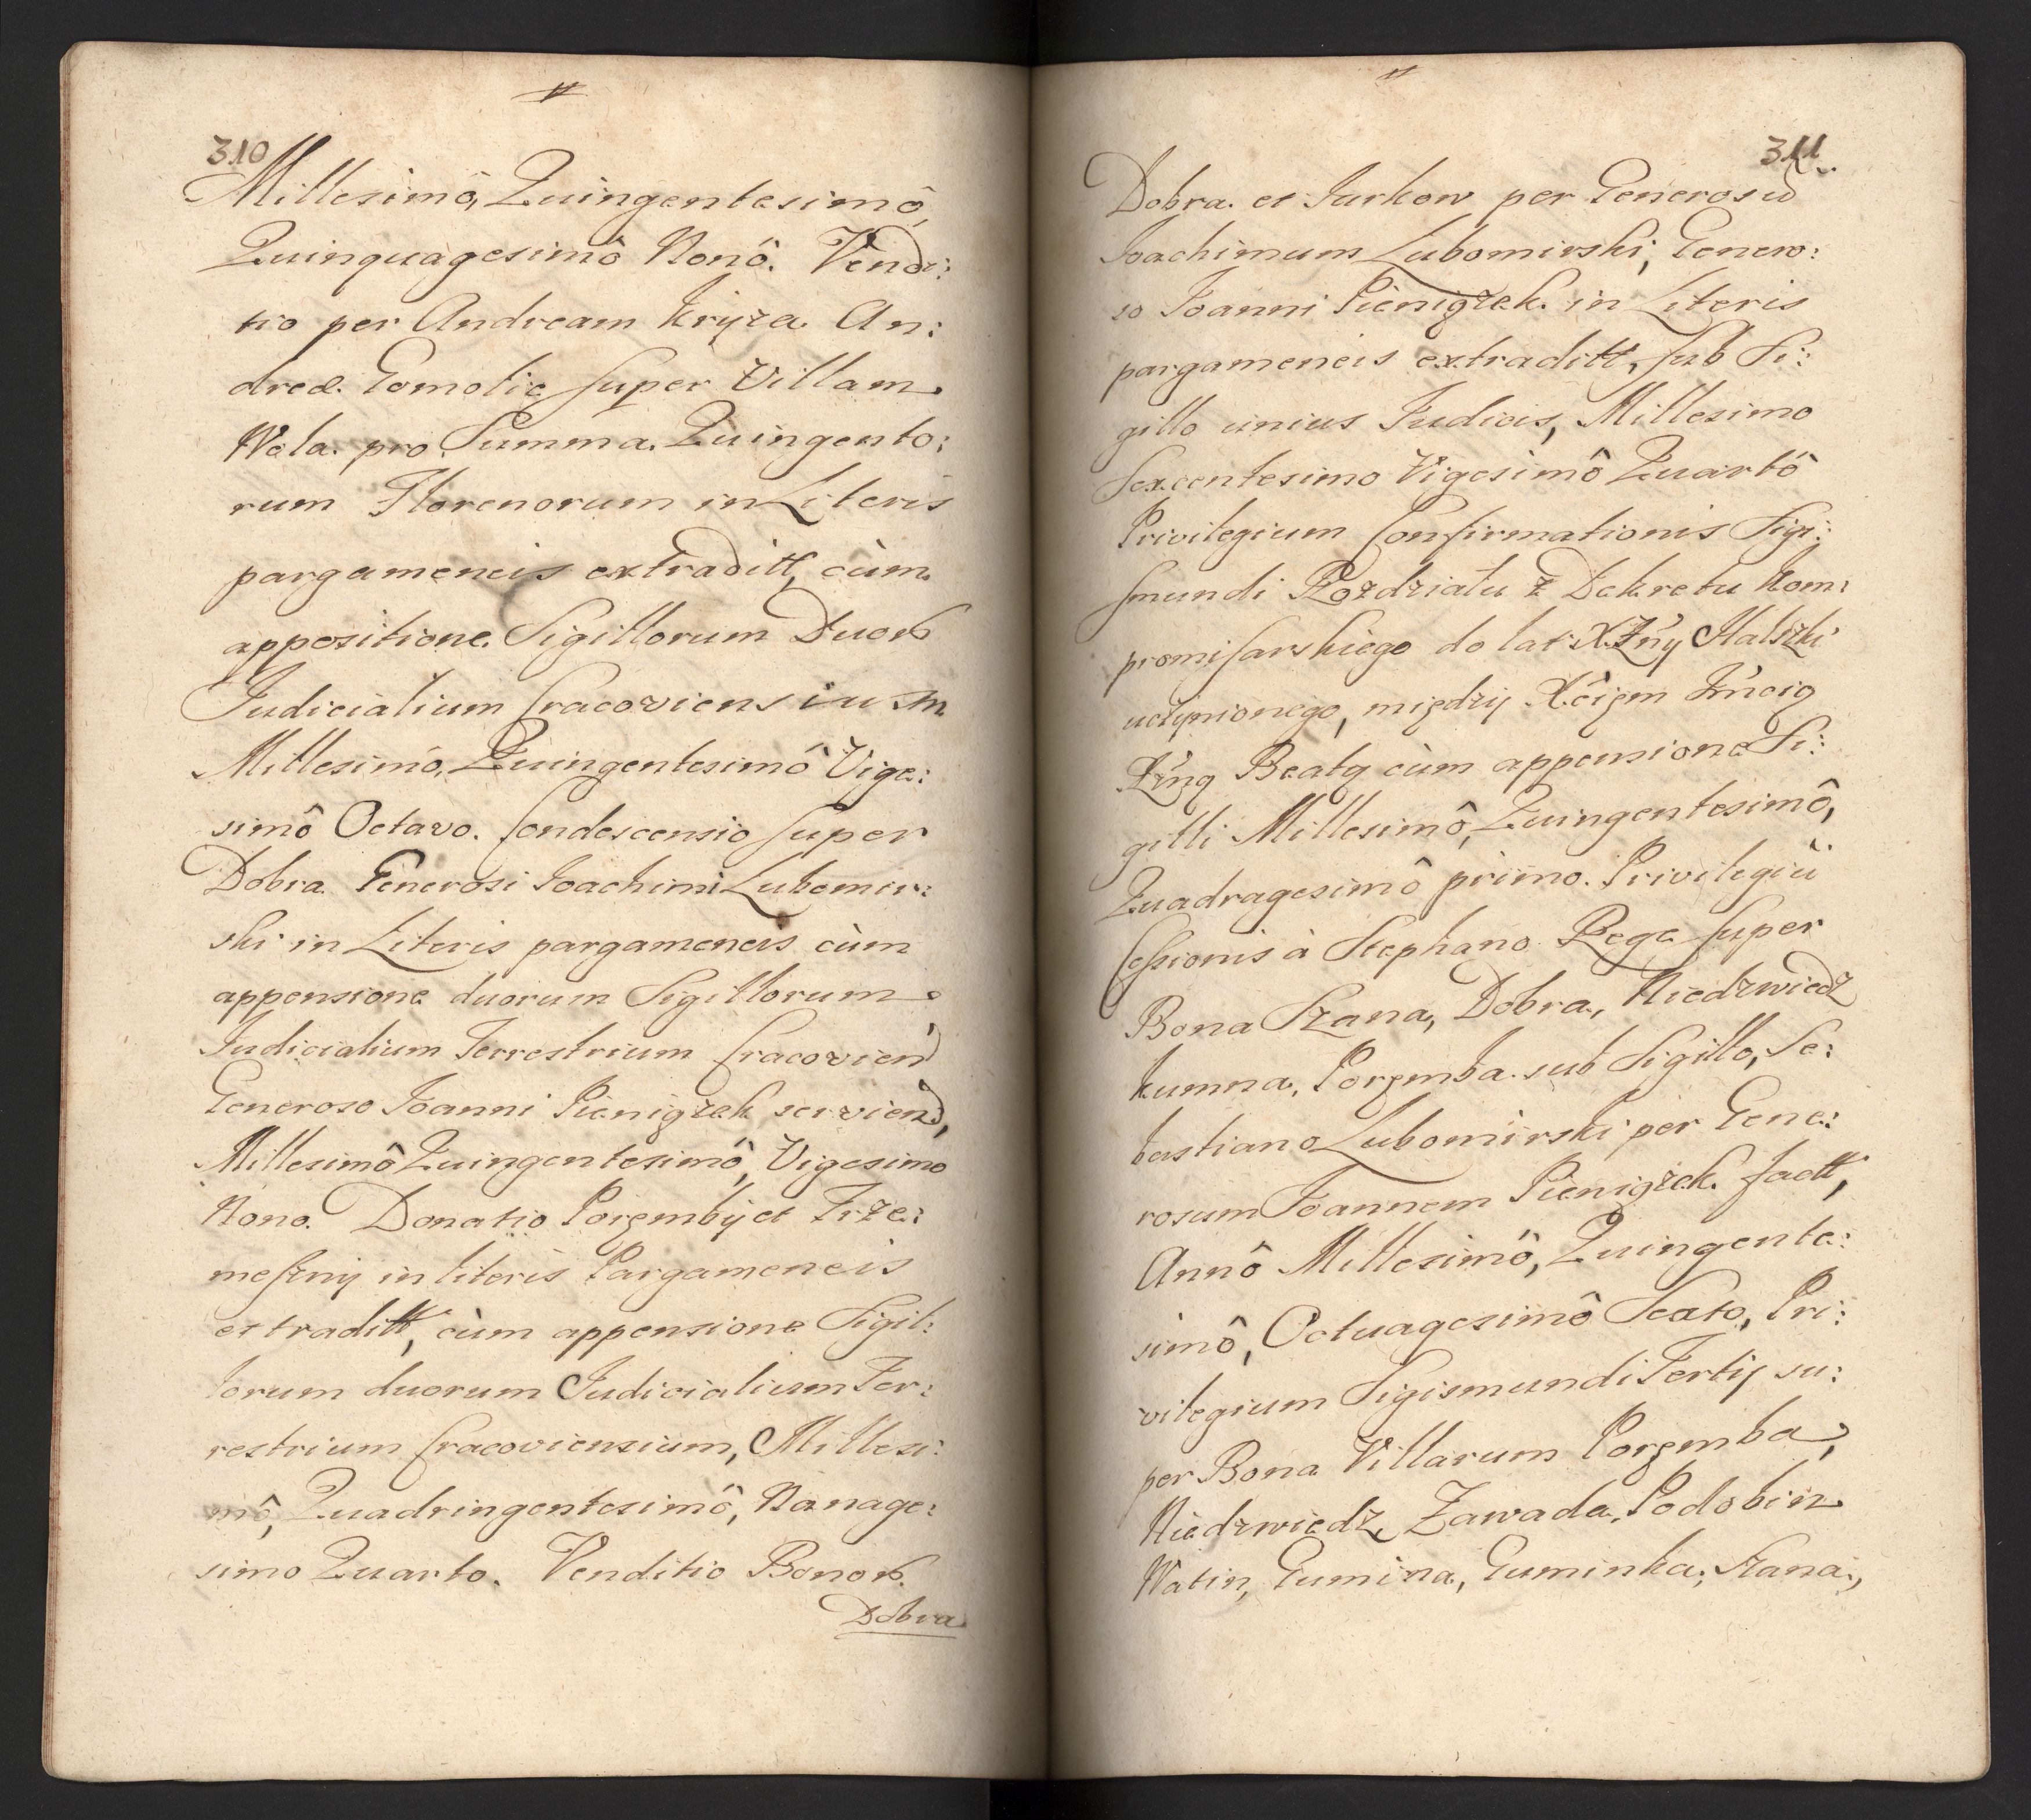 310
Millesimô, Quingentesimô,
Quinquagesimô Nonô. Vendi:
tio per Andream Kryza An:
dreæ Gomolie super Villam
Wola pro Summa Quingento:
rum Florenorum in Literis
pargameneis extraditt, cùm
appositione Sigillorum Duor
Judicialium Cracoviensium
Millesimô, Quingentesimô Vige:
simô Octavo. Condescensio super
Dobra Generosi Joachimi Lubomir:
ski in Literis pargameneis cùm
appensione duorum Sigillorum
Judicialium Terrestrium Cracovien
Generoso Joanni Pieniążek servien,
Millesimô Quingentesimô, Vigesimo
Nono. Donatio Poręmby et Trze:
meszny in literis Pargameneis
extraditt, cùm appensione Sigil:
lorum duorum Judicialium Ter:
restrium Cracoviensium, Millesi:
mô, Quadringentesimô, Nonage:
simo Quarto. Venditio Bonor
Dobra
311
Dobra et Jurkow per Generosũ
Joachimum Lubomirski, Genero:
so Joanni Pieniążek in Literis
pargameneis extraditt, sub Si:
gillo unius Judicis, Millesimo
Sexcentesimo Vigesimô Quartô
Privilegium Confirmationis Sigi:
smundi Rozdziału z Dekretu Kom:
promisarskiego do lat X.Żny Halszki
uczynionego, między X.ciem Jmcią
Xżną Beatą cùm appensione Si:
gilli Millesimô, Quingentesimô,
Quadragesimô primo. Privilegiũ
Cessionis à Stephano Rege super
Bona Szana, Dobra, Niedzwiedz
Kumna, Poręmba sub Sigillo, Se:
bastiano Lubomirski per Gene:
rosum Joannem Pieniążek factt,
Annô Millesimô, Quingente:
simô, Octuagesimô Sexto, Pri:
vilegium Sigismundi Tertij su:
per Bona Villarum Poręmba,
Niedzwiedz, Zawada, Podobin
Watin, Gumina, Guminka, Szana,